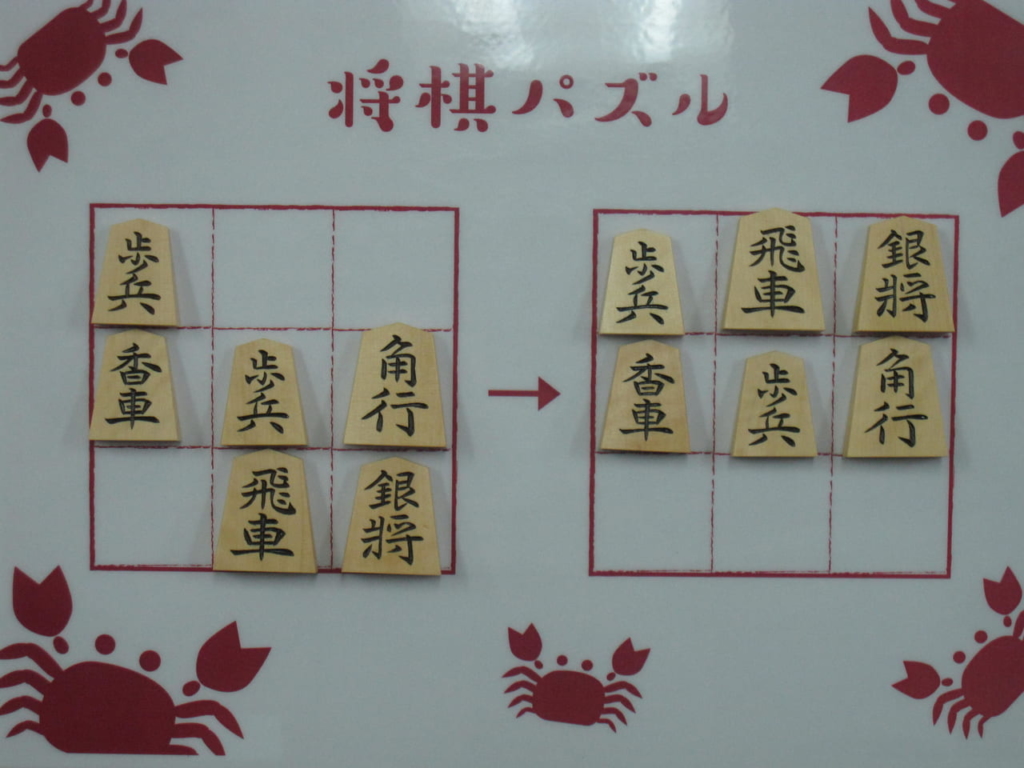 将棋パズル
歩兵
香車
歩兵
角行
飛車
銀將
歩兵
飛車
銀將
香車
歩兵
角行